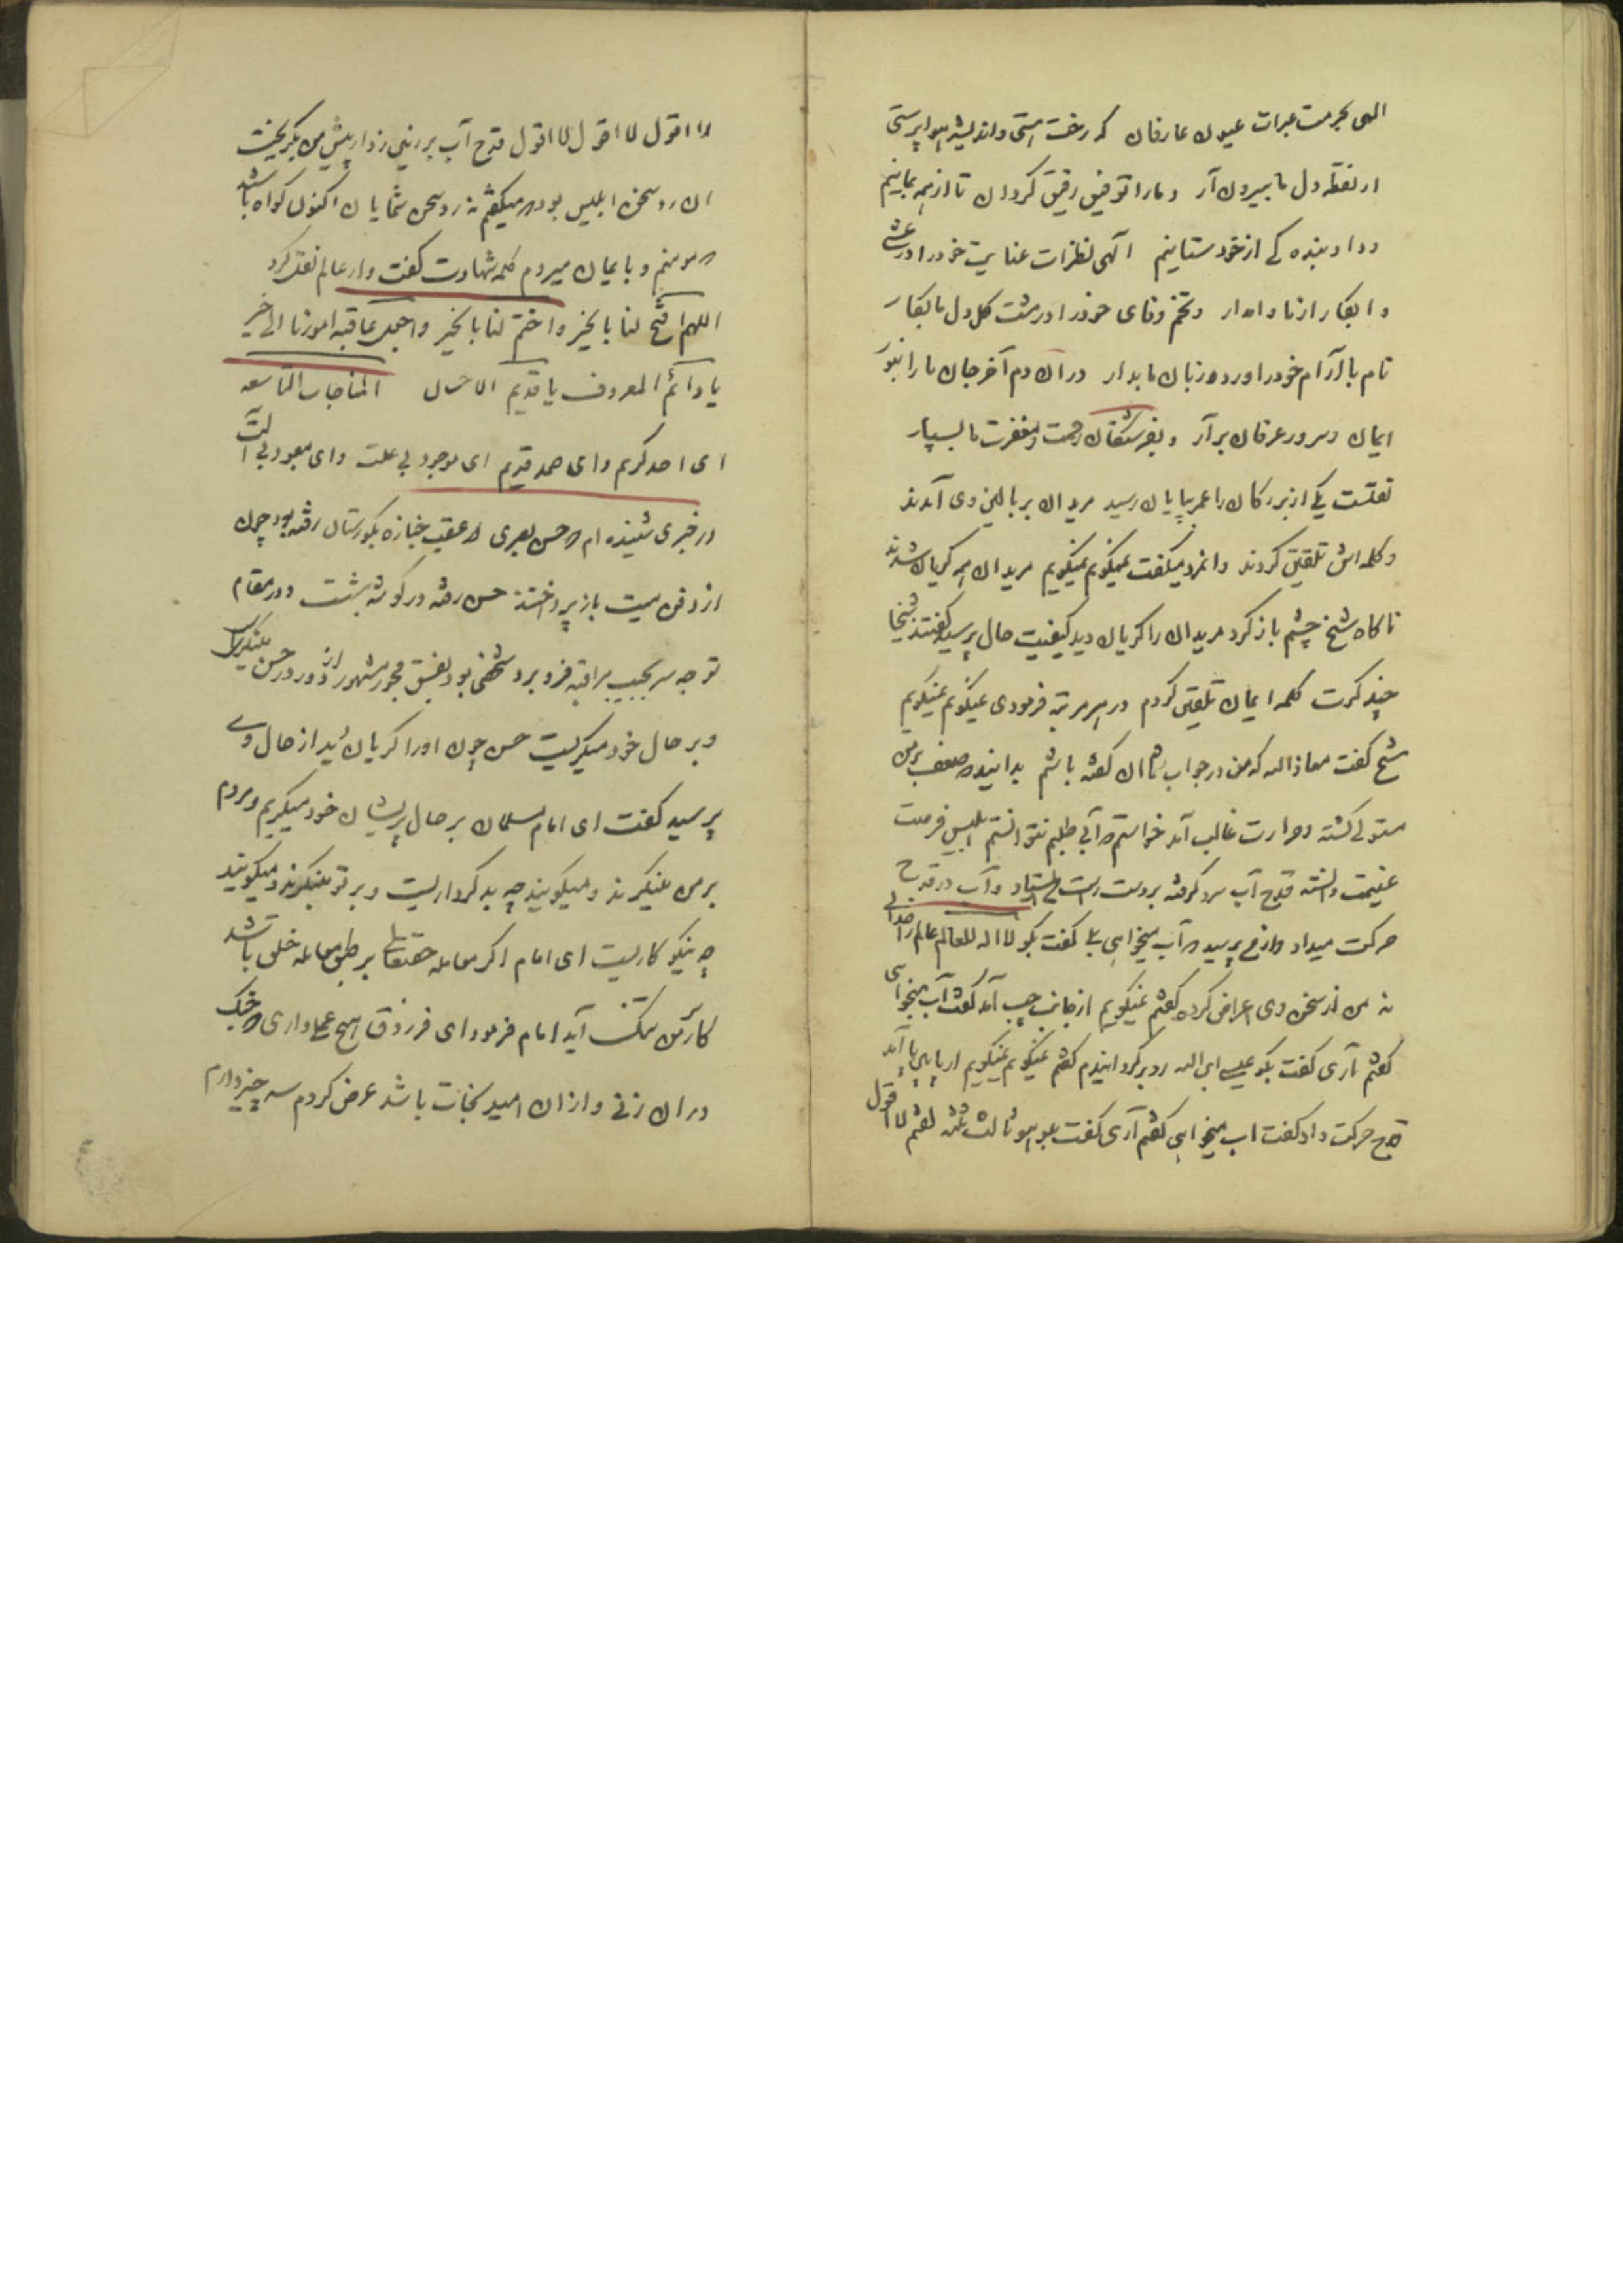 الهی بحرمت عبرات عیون عارفان که رخت هستی و اندیشه هواپرستی
از نقطه دل ما بیرون آر و ما را توفیق رفیق گردان تا از همه بماینم
و داد بنده کے از خود ستاینم الهی نظرات عنایت خود را در عشے
و ابکار از ما وامدار و تخم وفای خود را در مشت کل دل ما بکار
نام با آرام خود را ورد زبان ما بدار در ان دم آخر جان ما را بنور
ایمان و سرور عرفان برآر و بفرشتکان رحمت و مغفرت ما بسپار
نقلست یکے از بزرکان را عمر بپایان رسید مریدان ببالین وی آمدند
و کلمه اش تلقین کردند و انمرد میکفت نمیکویم نمیکویم مریدان همه کریان شدند
ناکاه شیخ چشم باز کرد مریدان را کریان دید کیفیت حال پرسید کفتند شیخا
چند کرت کلمه ایمان تلقین کردم در هر مرتبه فرمودی نمیکویم نمیکویم
شیخ کفت معاذ الله که من در جواب شما ان کفته باشم بدانید که ضعف بر من
مستولی کشته و حرارت غالب آمد خواستم که آبی طلبم نتوانستم ابلیس فرصت
غنیمت دانسته قدح آب سرد کرفته بر دست راست من استاد و آب در قدح
حرکت میداد و از من پرسید که آب میخواهی بلے کفت بکو لا اله للعالم عالم را خدائی
نه من از سخن وی اعراض کرده کفتم نمیکویم از جانب چپ آمد کفت آب میخواهی
کفتم آری کفت بکو عیسے ابن الله رو برکردانیدم کفتم نمیکویم نمیکویم از پایین پا آمد
قدح حرکت داد کفت اب میخواهی کفتم آری کفت بکو هو ثالث ثلثه کفتم لا اقول
لا اقول لا اقول لا اقول قدح آب بر زمین زد از پیش من بکریخت
ان رد سخن ابلیس بود که میکفتم نه رد سخن شمایان اکنون کواه باشید
که مومنم و با ایمان میروم کلمه شهادت کفت و از عالم نقل کرد
اللهم افتح لنا بالخیر و اختم لنا بالخیر و اجعل عاقبة امورنا الی خیر
یا دائم المعروف یا قدیم الاحسان المناجات التاسعه
ای احد کریم و ای صمد قدیم ای موجود بی علت و ای معبود بی آلت
در خبری شنیده ام که حسن بصری در عقب جنازه بکورستان رفته بود چون
از دفن میت باز پرداختند حسن رفته در کوشه بنشست و در مقام
توجه سر بجیب مراقبه فرو برد شخصی بود بفسق و فجور مشهور از دور در حسن مینکریست
و بر حال خود میکریست حسن چون او را کریان دید از حال وے
پرسید کفت ای امام مسلمان بر حال پریشان خود میکریم و مردم
بر من مینکرند و میکویند چه بد کرداریست و بر تو مینکرند و میکویند
چه نیکو کاریست ای امام اکر معامله حقتعالی بر طبق معامله خلق باشد
کار من تنک آید امام فرمود ای فرزدق هیچ عملی داری که چنک
در ان زنی و از ان امید نجات باشد عرض کردم سه چیز دارم